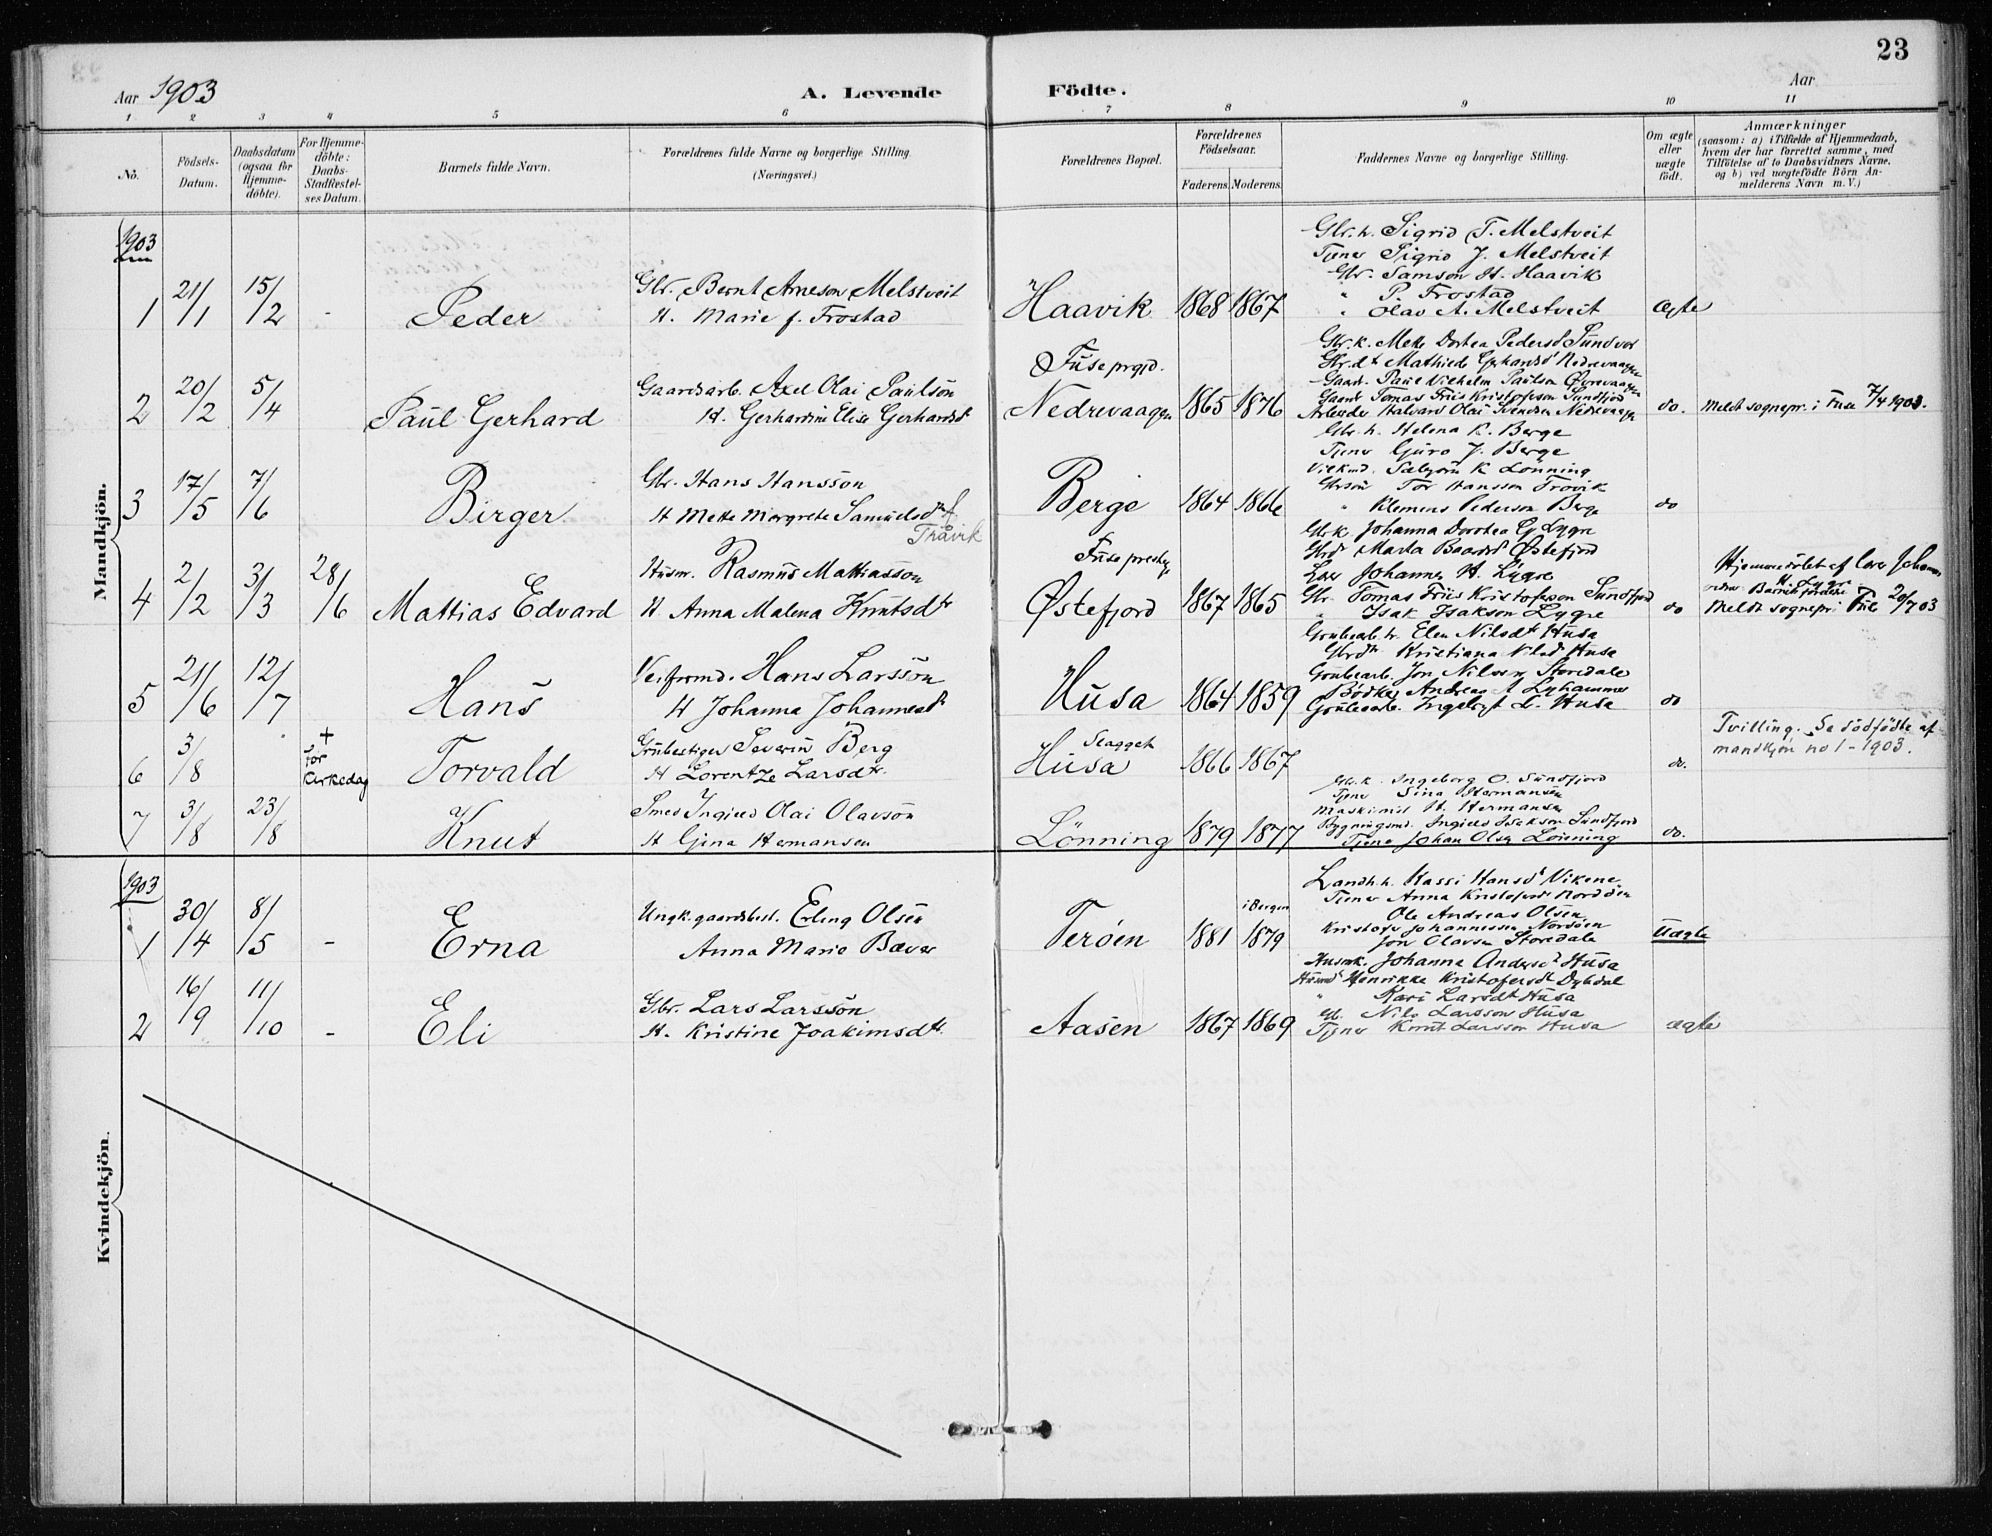 23
Aar 1903
A. Levende Födte.
Aar
1 2 3 4 5 6 7 8 9 10 11
No.
Födsels-Datum.
Daabsdatum (ogsaa för Hjemmedöbte).
For Hjemmedöbte: Daabs-Stadfæstelses Datum.
Barnets fulde Navn.
Forældrenes fulde Navne og borgerlige Stilling. (Næringsvei.)
Forældrenes Bopæl.
Forældrenes Födselsaar.
Faderens. Moderens.
Faddernes Navne og borgerlige Stilling.
Om ægte eller uægte födt.
Anmærkninger
(saasom: a) i Tilfælde af Hjemmedaab, hvem der har forrettet samme, med Tilföielse af to Daabsvidners Navne, og b) ved uægtefödte Börn Anmelderens Navn m. V.)
Mandkjön.
1903
1 21/1 15/2 - Peder
Gbr. Bernt Arneson Melstveit
H. Marie f. Frostad
Haavik 1868 1867
Gbr.h. Sigrid T. Melstveit
Tjener Sigrid J. Melstveit
Gbr. Samson H. Haavik
" P. Frostad
" Olav A. Melstveit
Ægte
2 20/2 5/4 Paul Gerhard
Gaardsarb. Axel Olai Paulson
H. Gerhardine Elise Gerhardsdt
Fuse prgjd.
Nedrevaagen 1865 1876
Gbr.k. Mette Dortea Pedersd Sundvor
Gbr.dt Mathilde Gerhardsdt Nedrevaagen
Gaard. Paul Vilhelm Paulson Øvrevaagen
Gaard Tomas Friis Kristofferson Sundfjord
Arbeider Halvard Olai Svendsen Nedrevaagen
do.
Meldt sognepr. i Fuse 7/4 1903.
3 17/5 7/6 Birger
Gbr. Hans Hansson
H Mette Margrete Samuelsdt f. Tråvik
Berge 1864 1866
Gbr.h. Helena K. Berge
Tjener Guro J. Berge
Sæbjörn K Lönning
Gbrsön Tor Hansson Trovik
" Klemens Pederson Berge
do
4 2/2 3/3 28/6 Mattias Edvard
Husm. Rasmus Mattiasson
H. Anna Malena Knutsdtr
Fuse prestegj
Østefjord 1867 1865
Gbrk Johanna Dorotea G. Lygre
Gbrdt Marta Baardsd Østefjord
Lærer Johannes H. Lygre
Gbr. Tomas Friis Kristofferson Sundfjord
Isak Isakson Lygre
do
Hjemmedöbt af lærer Johannes H. Lygre
Meldt sognepr i Fuse 20/7 03
5 21/6 12/7 Hans
Veiformd. Hans Larsson
H Johanna Johannesdt
Husa 1864 1859
Grubearb.h. Elen Nilsdt Husa
Gbrdtr Kristiana Nilsdt Husa
Grubearb. Jon Nilsen Storedale
Bödker Andreas A Lyhammer
Grubearb. Ingebrigt L. Husa
do
6 3/8 + før kirkedag Torvald
Grubestiger Severin Berg
H Lorentze Larsdtr.
Slagget
Husa 1866 1867
do.
Tvilling. Se dödfödte af mandkjön no 1 - 1903.
7 3/8 23/8 Knut
Smed Ingjeld Olai Olavson
H Gjina Hermansen
Lönning 1879 1877
Gbr.k. Ingeborg O. Sundfjord
Tjener Sina Hermansen
Maskinist H. Hermansen
Bygningsmd. Ingjeld Isakson Sundfjord
Tjener Johan Olsen Lönning
do.
Kvindekjön.
1903
1 30/4 8/5 - Erna
Ungk. gaardsbest. Erling Olsen
Anna Marie Bæver
Terøen 1881 i Bergen 1879
Landh.h. Kassi Hansdt Vikene
Tjener Anna Kristofersd Nordöen
Ole Andreas Olsen
Kristofer Johannessen Norsöen
Jon Olavsen Storedale
Uægte
2 16/9 11/10 - Eli
Gbr. Lars Larsson
H. Kristine Joakimsdtr.
Aasen 1867 1869
Husmk. Johanna Andersdt Husa
Husmdt Henrikke Kristofersdt Dybdal
" Kari Larsdt Husa
Gbr. Nils Larsson Husa
Tjener Knut Larsson Husa
ægte